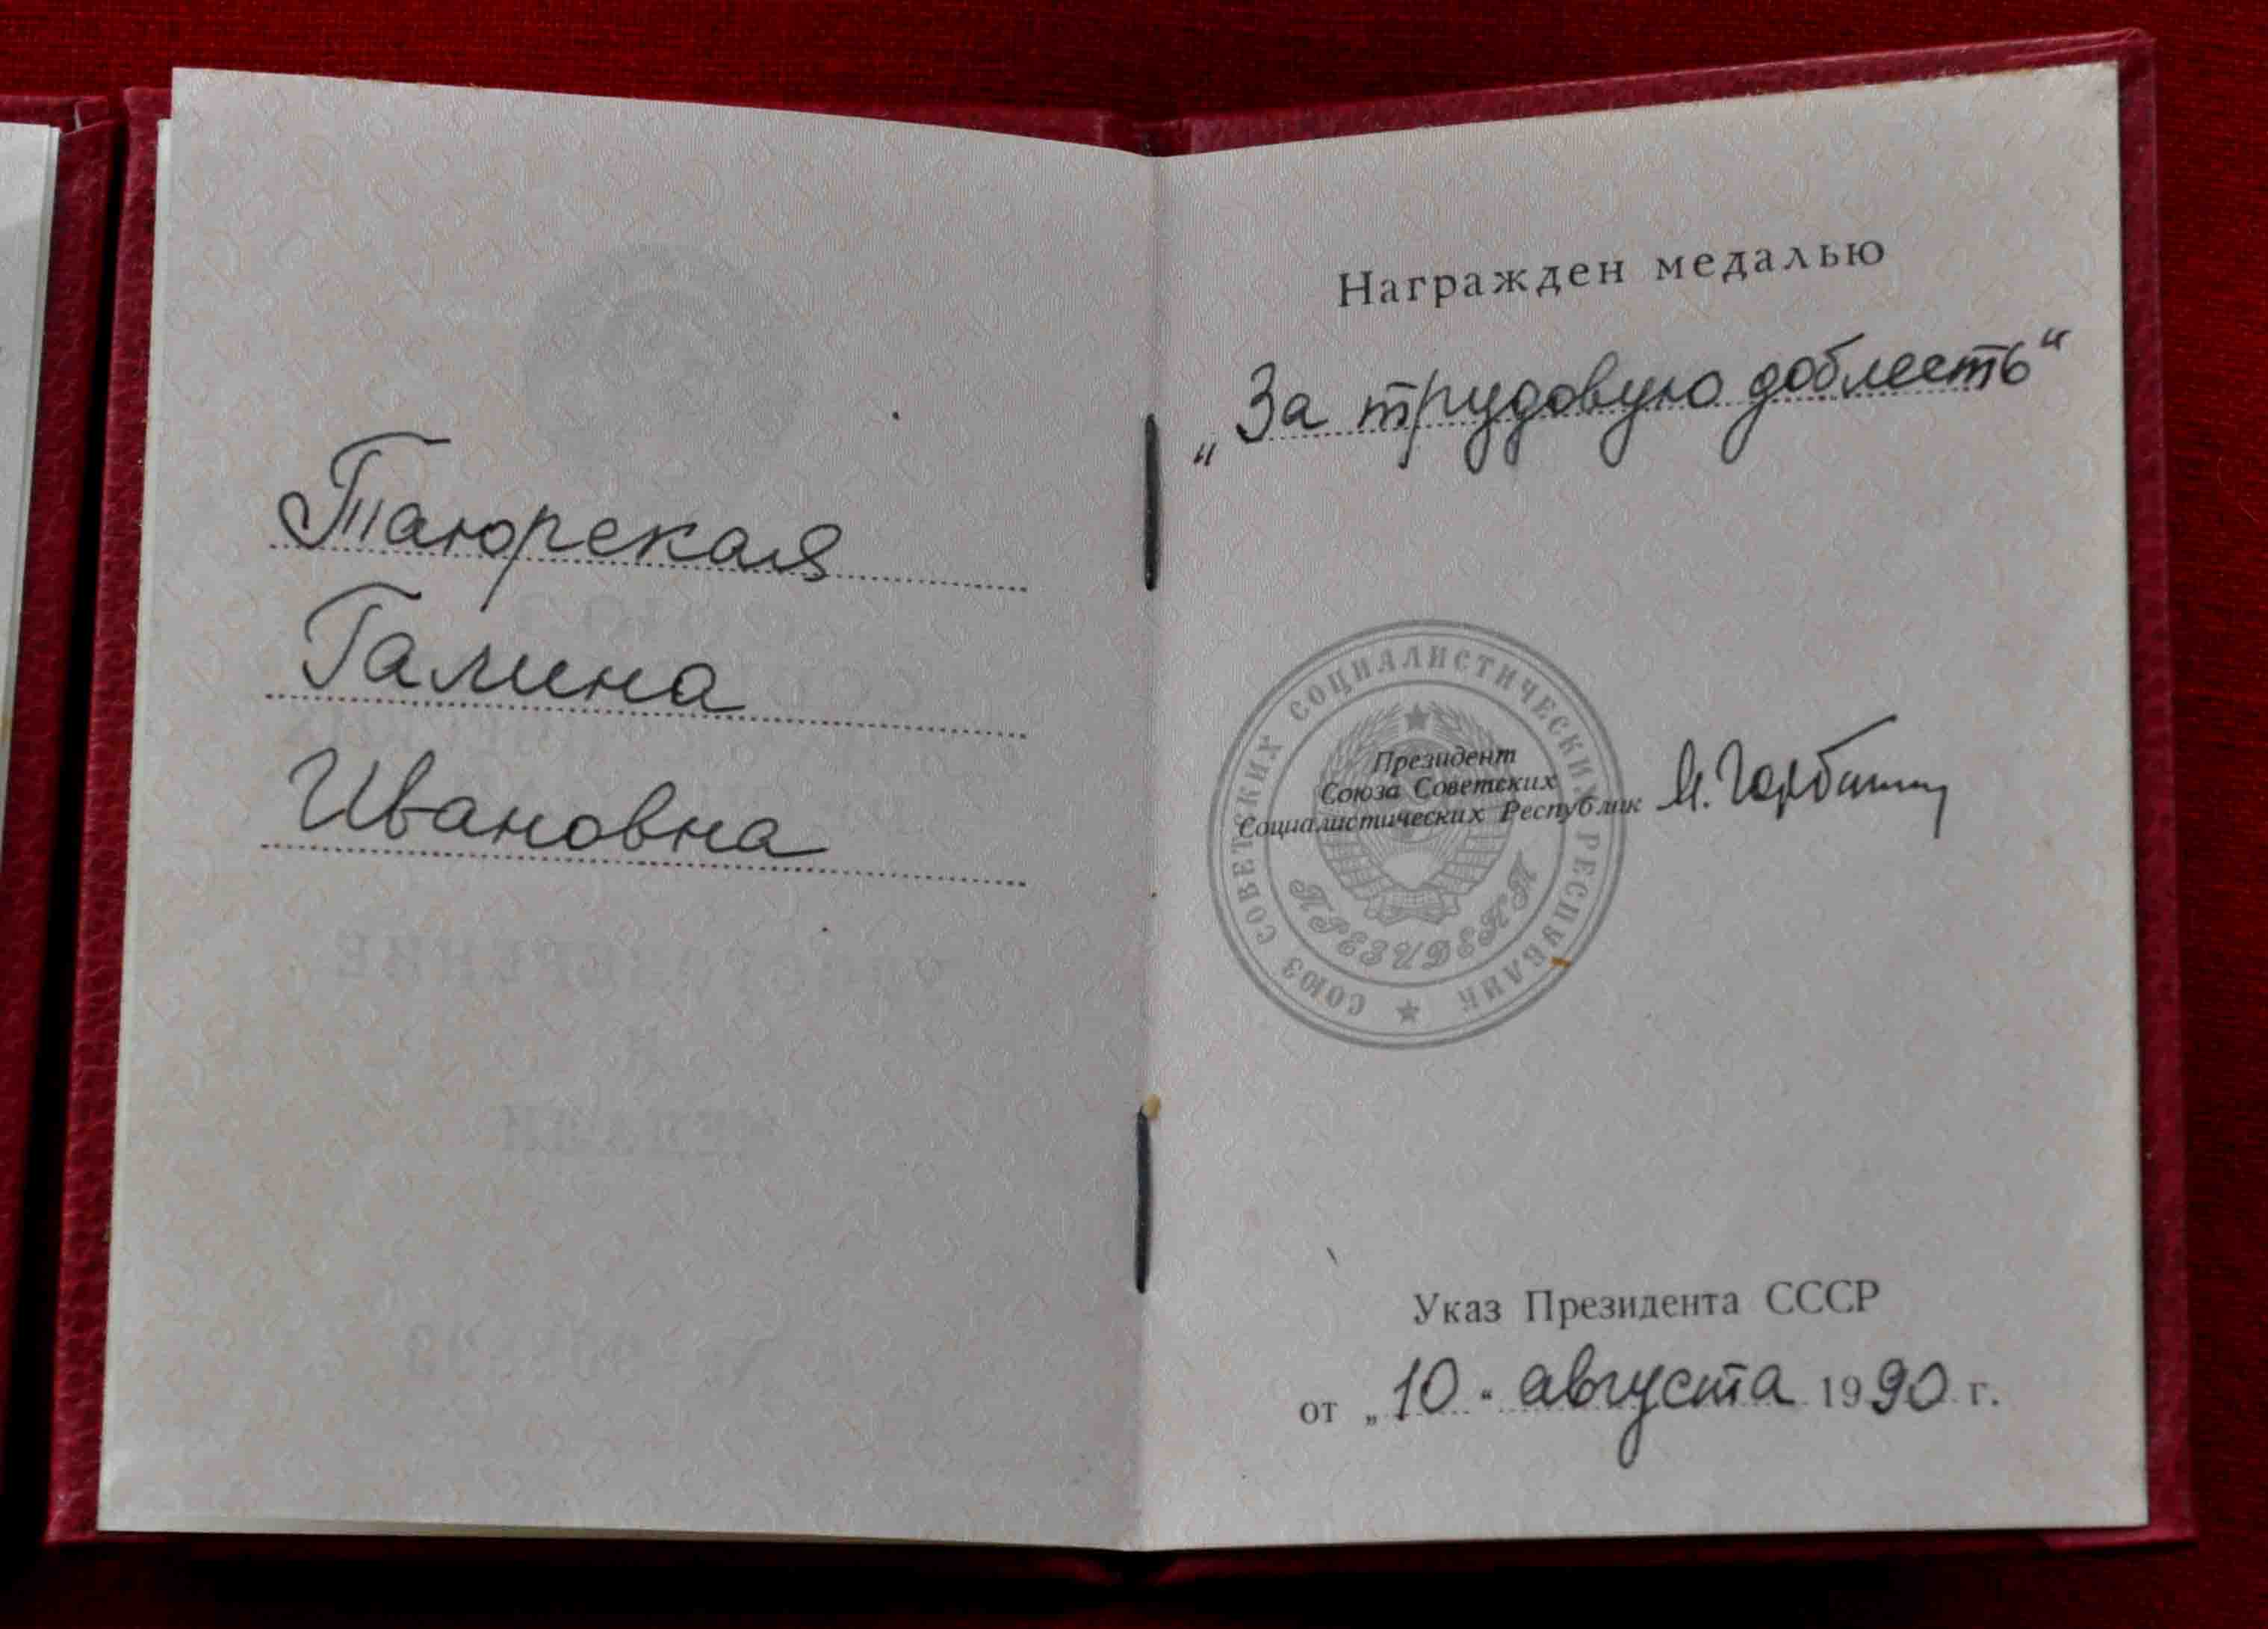 Таюрская
Галина
Ивановна
Награжден медалью
„За трудовую доблесть“
СОЮЗ СОВЕТСКИХ СОЦИАЛИСТИЧЕСКИХ РЕСПУБЛИК
Президент
Союза Советских
Социалистических Республик М. Горбачев
ПРЕЗИДЕНТ
Указ Президента СССР
от „10“ августа 1990 г.